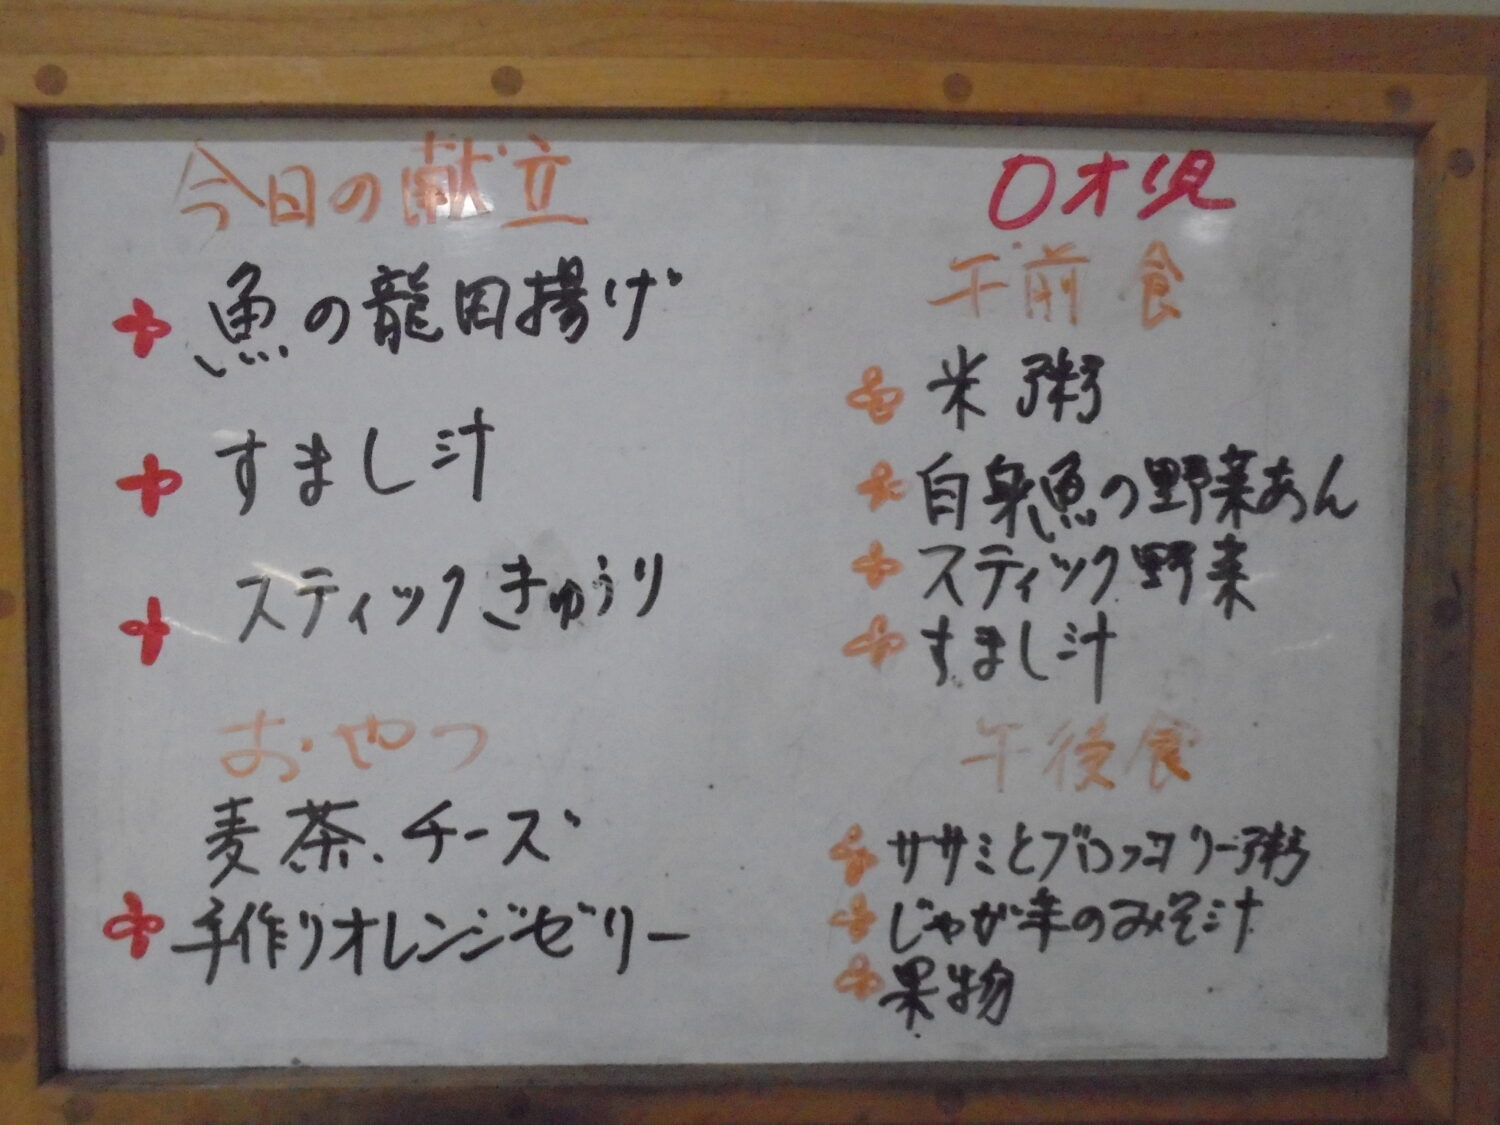 今日の献立
魚の龍田揚げ
すまし汁
スティックきゅうり
おやつ
麦茶、チーズ
手作りオレンジゼリー
0才児
午前食
米粥
白身魚の野菜あん
スティック野菜
すまし汁
午後食
ササミとブロッコリー粥
じゃが芋のみそ汁
果物